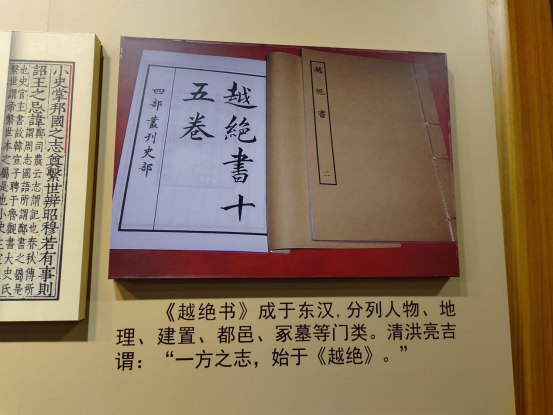 小史掌邦國之志奠繫世辨昭穆若有事則
詔王之忌諱
越絶書十
五卷
四部叢刊史部
越絶書
二
《越绝书》成于东汉，分列人物、地
理、建置、都邑、冢墓等门类。清洪亮吉
谓：“一方之志，始于《越绝》。”